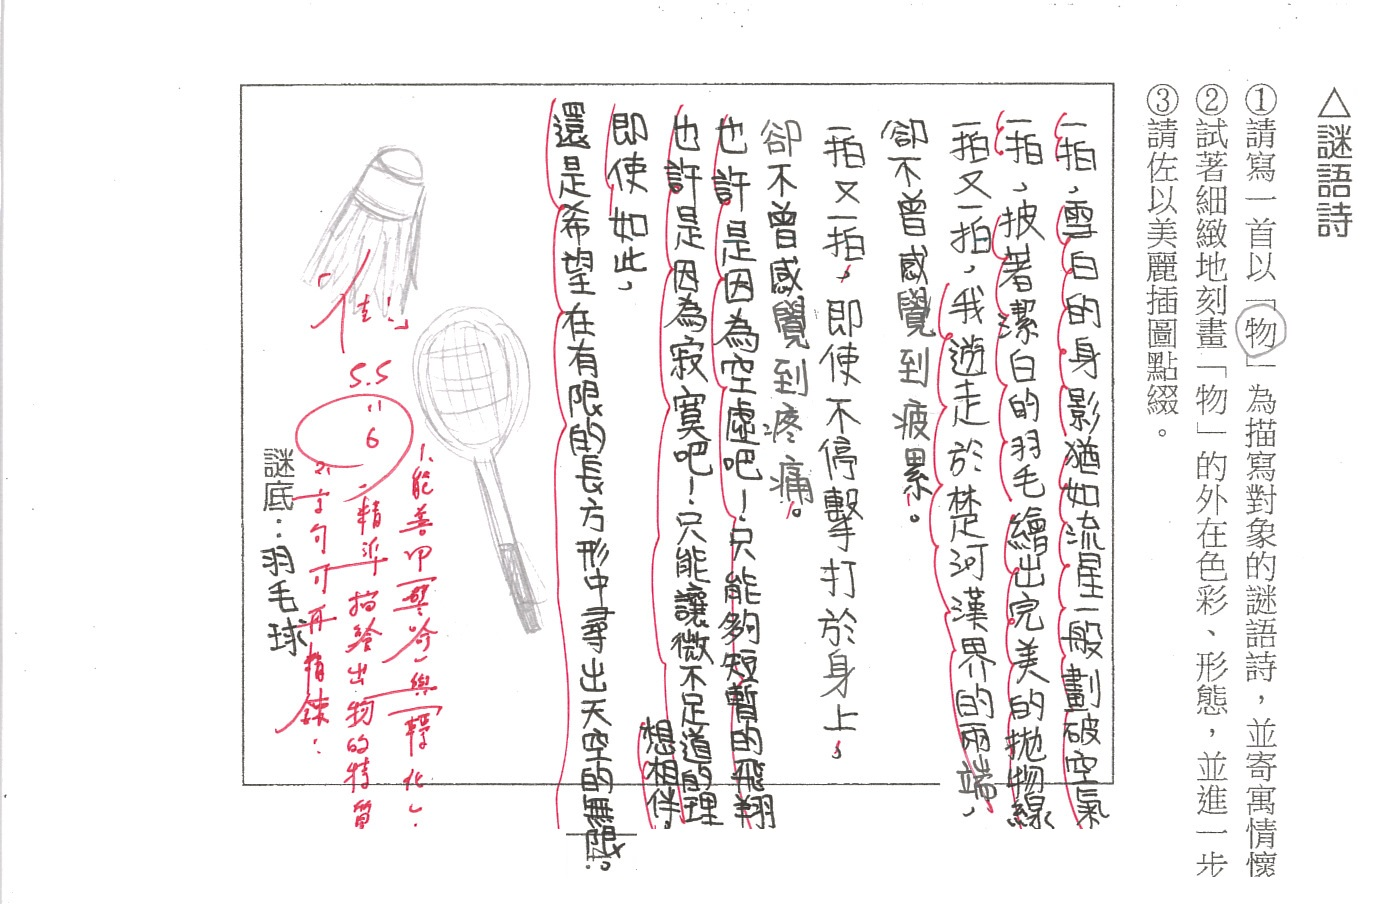 △謎語詩
①請寫一首以「物」為描寫對象的謎語詩，並寄寓情懷
②試著細緻地刻畫「物」的外在色彩、形態，並進一步
③請佐以美麗插圖點綴。
一拍，雪白的身影猶如流星一般劃破空氣
一拍，披著潔白的羽毛繪出完美的拋物線
一拍又一拍，我遊走於楚河漢界的兩端，
卻不曾感覺到疲累。
一拍又一拍，即使不停擊打於身上，
卻不曾感覺到疼痛。
也許是因為空虛吧！只能夠短暫的飛翔
也許是因為寂寞吧！只能讓微不足道的理
想相伴，
即使如此，
還是希望在有限的長方形中尋出天空的無限。
「佳」
5.5
6
1、能善用「譬喻」與「轉化」，
精準描繪出物的特質
2、字句可再精鍊！
謎底：羽毛球